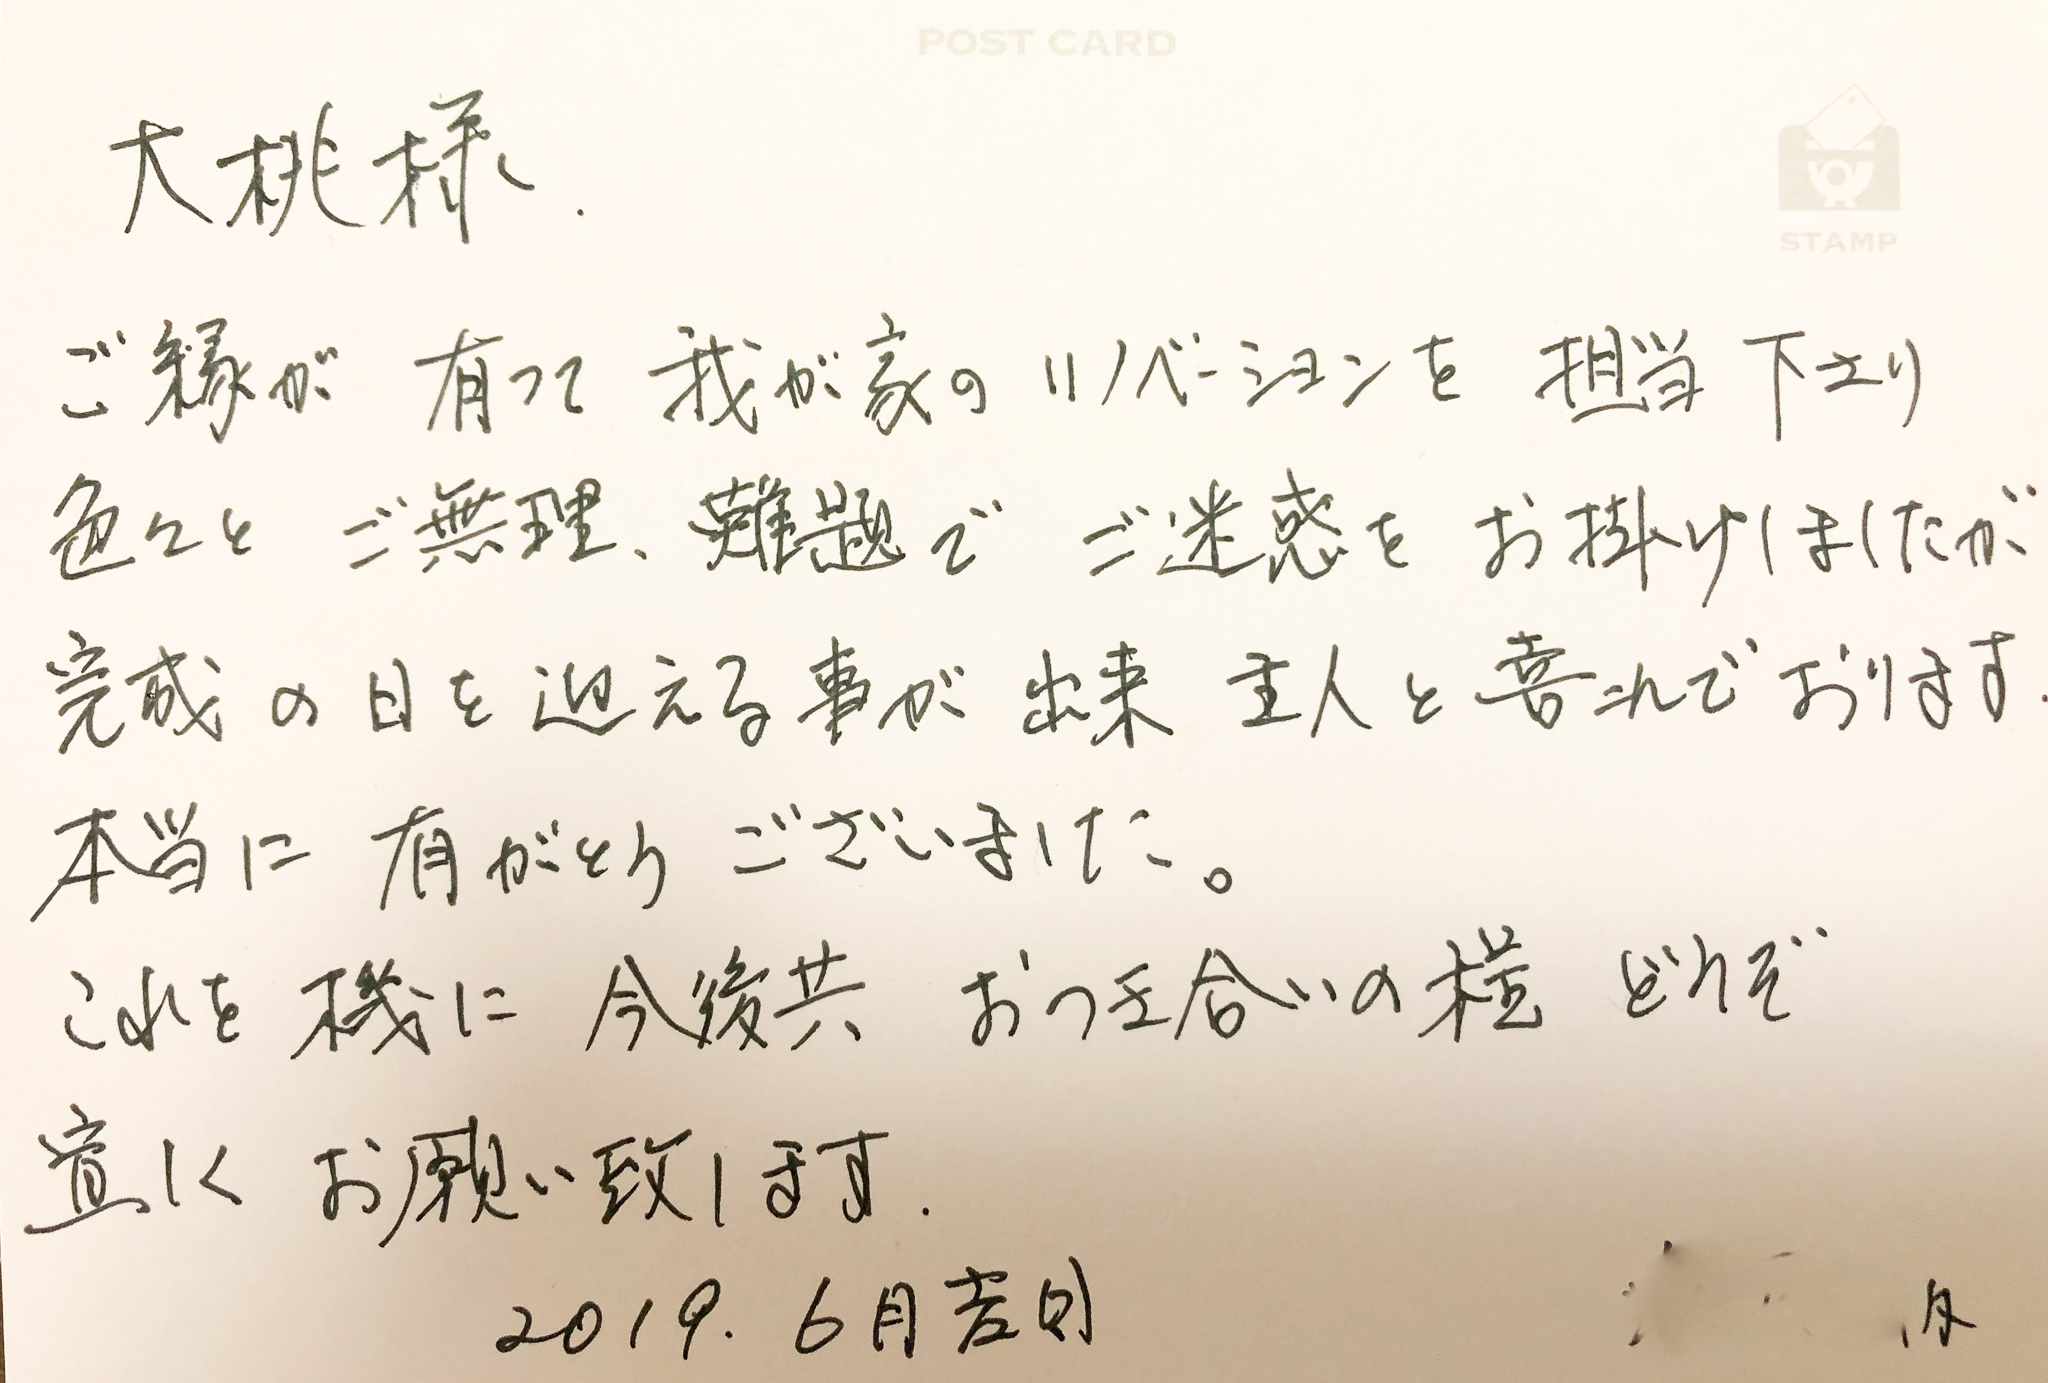 POST CARD
STAMP
大桃様.
ご縁が有って我が家のリノベーションを担当下さり
色々とご無理、難題でご迷惑をお掛けしましたが
完成の日を迎える事が出来主人と喜こんでおります.
本当に有がとうございました。
これを機に今後共おつき合いの様どうぞ
宜しくお願い致します.
2019. 6月吉日
内